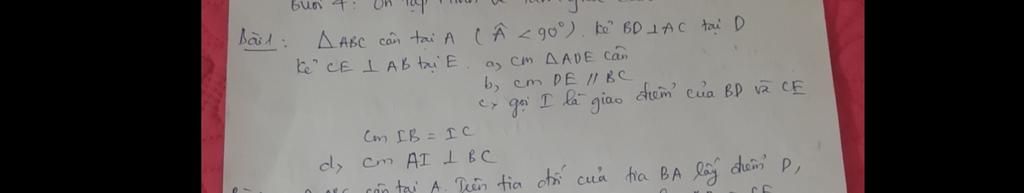 Buổi 4: Ôn tập
Bài 1: △ABC cân tại A (Â < 90°). Kẻ BD ⊥ AC tại D
Kẻ CE ⊥ AB tại E. a, cm △ADE cân
b, cm DE // BC
c, gọi I là giao điểm của BD và CE
cm IB = IC
d, cm AI ⊥ BC
cân tại A. Trên tia đối của tia BA lấy điểm D,